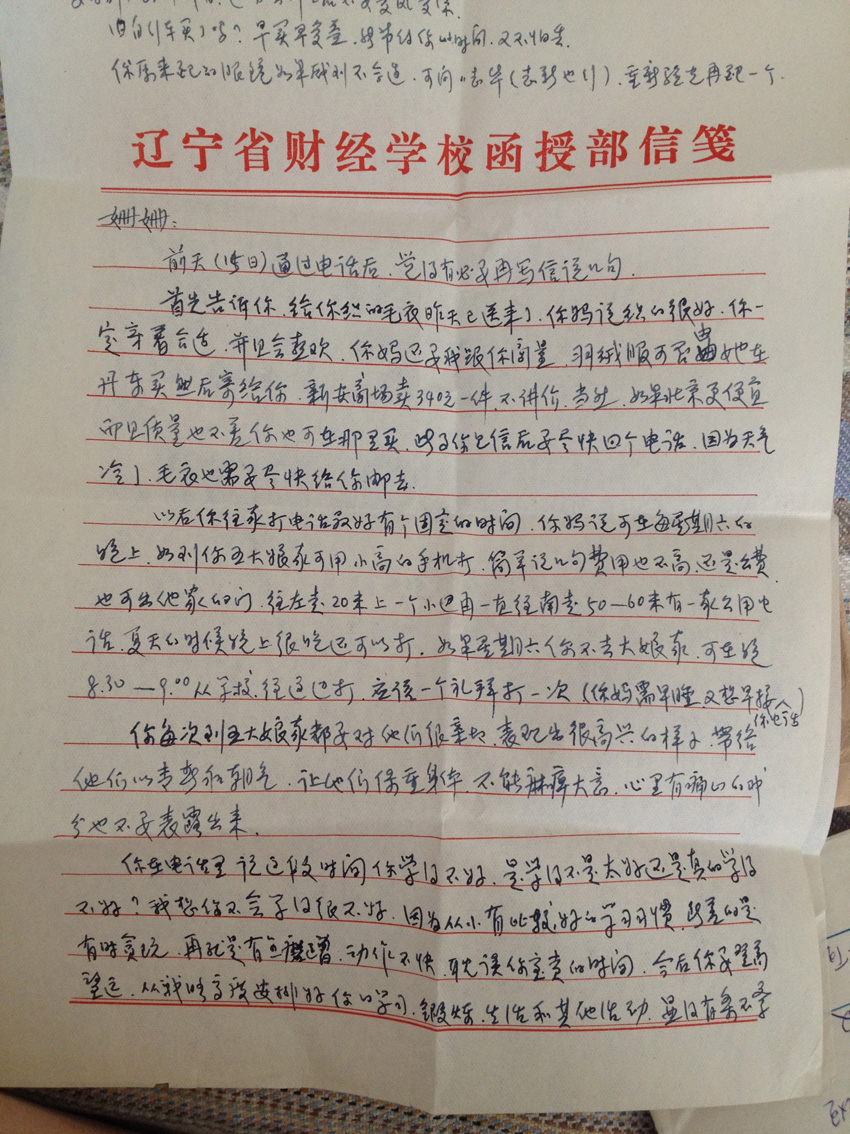 自行车买了吗？早买早受益，能节约你的时间，又不怕丢。
你原来配的眼镜如果感到不合适，可向 重新验光再配一个。
辽宁省财经学校函授部信笺
姗姗：
前天（15日）通过电话后，觉得有必要再写信说几句。
首先告诉你，给你织的毛衣昨天已送来了，你妈说织的很好，你一
定穿着合适，并且会喜欢，你妈还要我跟你商量，羽绒服可否由她在
丹东买然后寄给你，新安商场卖340元一件，不讲价，当然，如果北京更便宜
而且质量也不差你也可在那里买，此事你见信后要尽快回个电话，因为天气
冷了，毛衣也需要尽快给你邮去。
以后你往家打电话最好有个固定的时间，你妈说可在每星期六的
晚上，如到你五大娘家可用小高的手机打，简单说几句费用也不高，还是公费，
也可出他家的门，往左走20米上一个小 再一直往南走50—60米有一家公用电
话，夏天的时候晚上很晚还可以打，如果星期六你不去大娘家，可在晚
8.30—9.00从学校往这边打，应该一个礼拜打一次（你妈需早睡，又想早接
你电话）
你每次到五大娘家都要对他们很亲切，表现出很高兴的样子，带给
他们以青春和朝气，让他们保重身体，不能麻痹大意，心里有痛心的成
分也不要表露出来。
你在电话里说这段时间你学得不好，是学得不是太好还是真的学得
不好？我想你不会学得很不好，因为从小有比较好的学习习惯，所差的是
有时贪玩，再就是有点磨蹭，动作不快，耽误你宝贵的时间，今后你要登高
望远，从战略高度安排好你的学习、锻炼、生活和其他活动，显得有条不紊